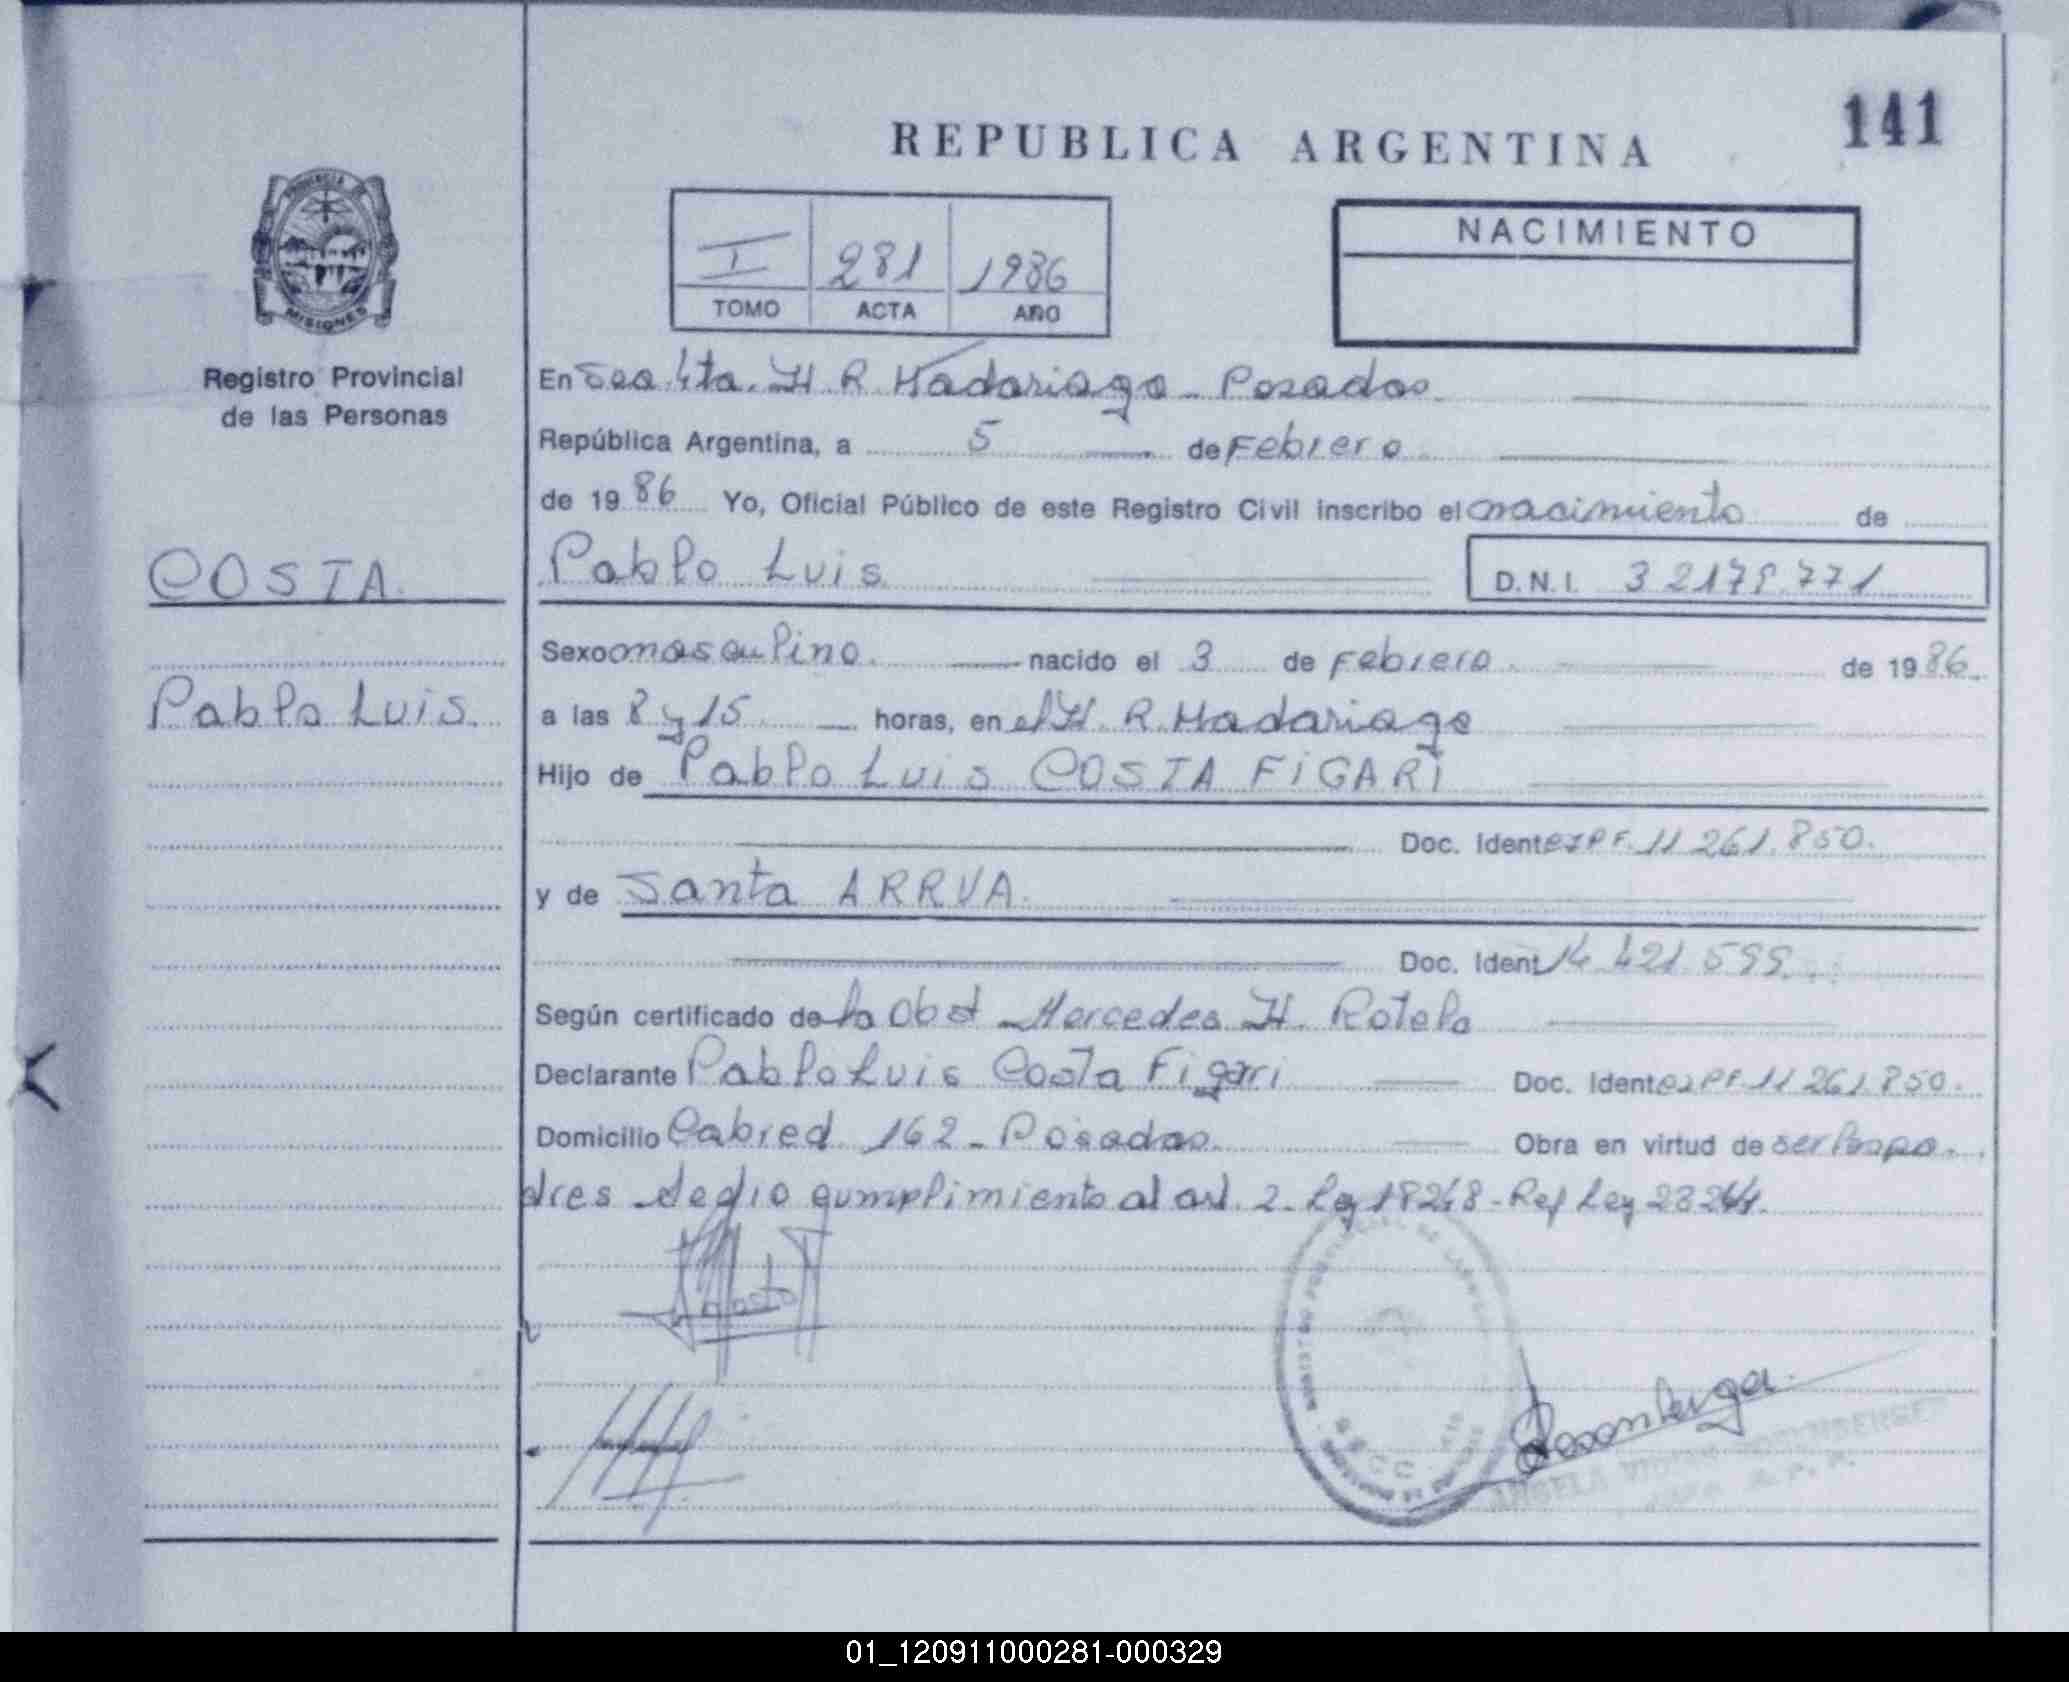 141
REPUBLICA ARGENTINA
PROVINCIA DE
MISIONES
Registro Provincial
de las Personas
I 281 1986
TOMO ACTA AÑO
NACIMIENTO
En Sec. 4ta. H R Madariaga - Posadas
República Argentina, a 5 de Febrero
de 1986 Yo, Oficial Público de este Registro Civil inscribo el nacimiento de
COSTA
Pablo Luis D.N.I. 32179.771
Sexo masculino. nacido el 3 de Febrero de 1986
Pablo Luis
a las 8 y 15 horas, en el H. R. Madariaga
Hijo de Pablo Luis COSTA FIGARI
Doc. Ident 11 261.850.
y de Santa ARRUA
Doc. Ident 14 421 599
Según certificado de la Obst Mercedes H. Rotela
Declarante Pablo Luis Costa Figari Doc. Ident 11 261.850.
Domicilio Cabred 162 - Posadas. Obra en virtud de ser los pa-
dres se dio cumplimiento al art. 2 - Ley 18248 - Ref Ley
01_120911000281-000329